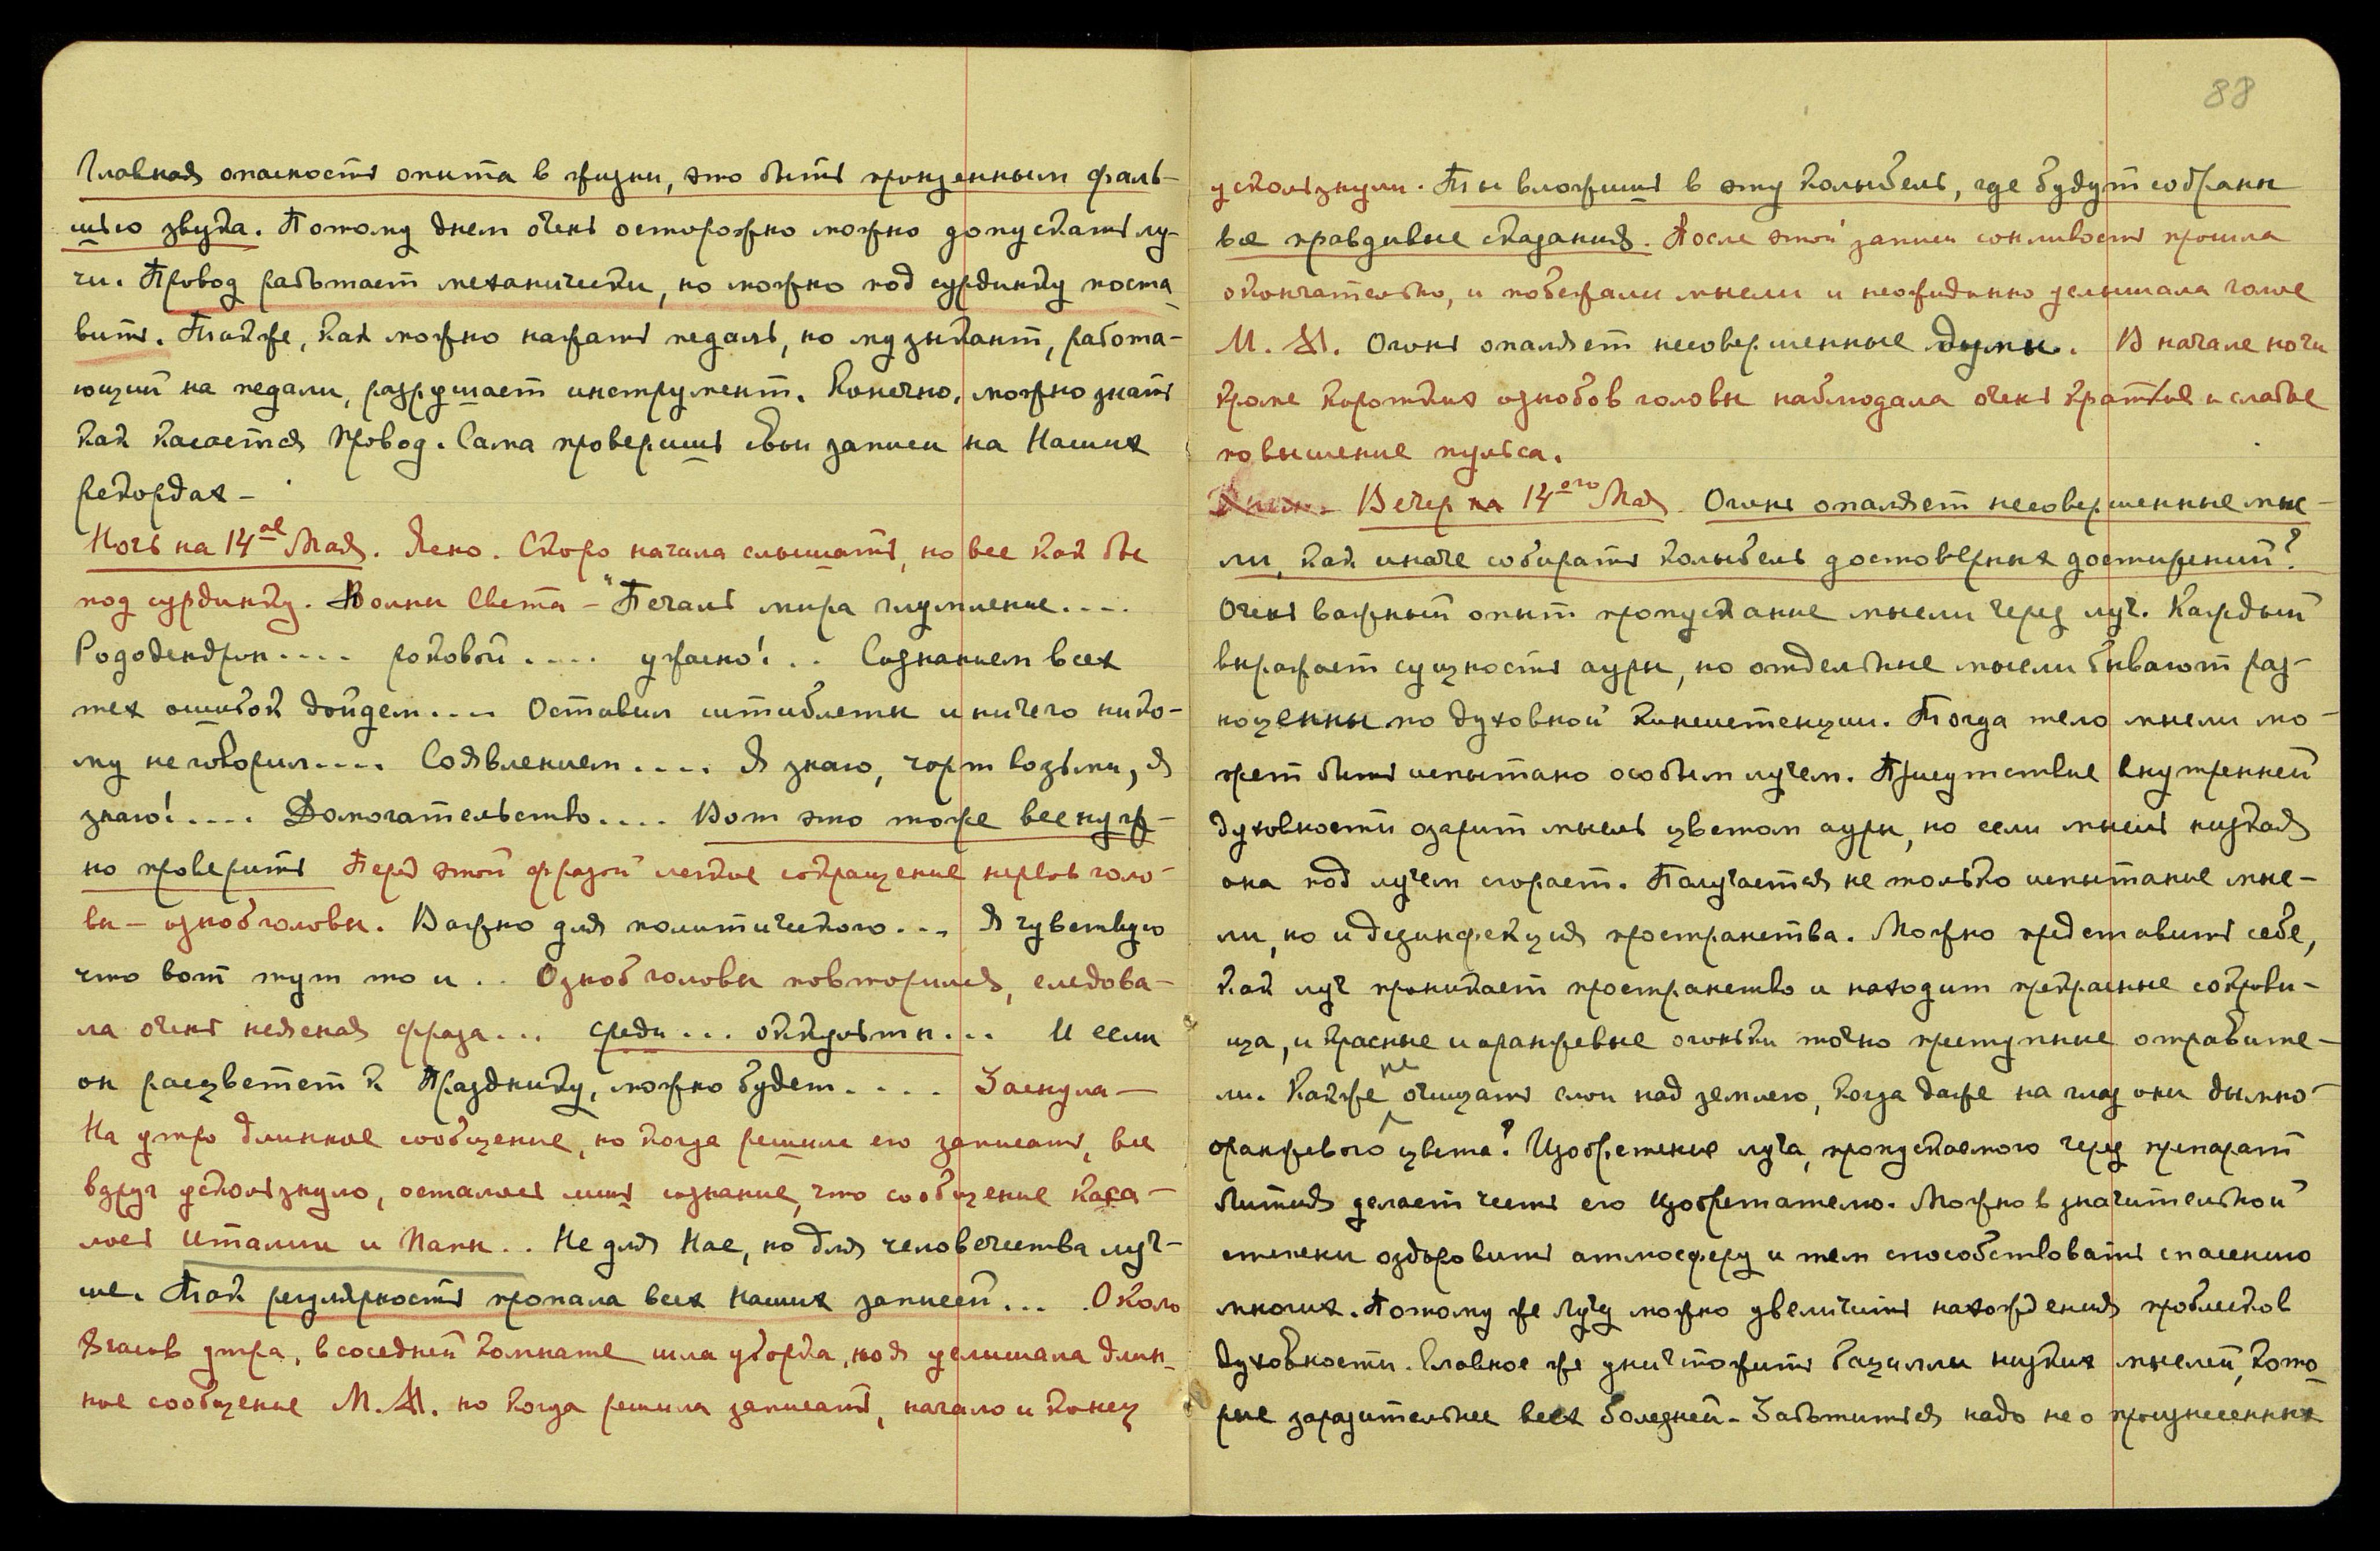 Главная опасность опыта в жизни, это быть пронзенным фаль-
шью звука. Потому днем очень осторожно можно допускать лу-
чи. Провод работает механически, но можно под сурдинку поста-
вить. Также, как можно нажать педаль, но музыкант, работа-
ющий на педали, разрушает инструмент. Конечно, можно знать
как касается провод. Сама проверишь свои записи на Наших
рекордах –
Ночь на 14ое Мая. Ясно. Скоро начала слышать, но все как бы
под сурдинку. Волны Света – "Печаль мира глумление....
Рододендрон.... роковой..... ужасно!.. Сознанием всех
тех ошибок дойдем.... Оставил штиблеты и ничего нико-
му не говорил.... Соявлением.... Я знаю, чорт возьми, я
знаю!.... Домогательство.... Вот это тоже все нуж-
но проверить Перед этой фразой легкое сокращение нервов голо-
вы – озноб головы. Важно для политического... Я чувствую
что вот тут то и.. Озноб головы повторился, следова-
ла очень неясная фраза... среди... оккульты... И если
он расцветет к Празднику, можно будет.... Заснула –
На утро длинное сообщение, но когда решила его записать, все
вдруг ускользнуло, осталось лишь сознание, что сообщение каса-
лось Италии и Папы.. Не для Нас, но для человечества луч-
ше. Так регулярность пропала всех наших записей... Около
часов утра, в соседней комнате шла уборка, но я услышала длин-
ное сообщение М.М. но когда решила записать, начало и конец
88
ускользнули. Ты вложишь в эту колыбель, где будут собраны
все правдивые сказания. После этой записи сонливость прошла
окончательно, и побежали мысли и неожиданно услышала голос
М.М. Огонь опаляет несовершенные думы. В начале ночи
кроме коротких ознобов головы наблюдала очень краткое и слабое
повышение пульса.
Вечер на 14ого Мая. Огонь опаляет несовершенные мыс-
ли, как иначе собирать колыбель достоверных достижений?
Очень важный опыт пропускание мысли через луч. Каждый
выражает сущность ауры, но отдельные мысли бывают раз-
ноценны по духовной консистенции. Тогда тело мысли мо-
жет быть испытано особым лучем. Присутствие внутренней
духовности озарит мысль цветом ауры, но если мысль низкая
она под лучем сгорает. Получается не только испытание мыс-
ли, но и дезинфекция пространства. Можно представить себе,
как луч проникает пространство и находит прекрасные сокрови-
ща, и красные и оранжевые огоньки точно преступные отравите-
ли. Как же не очищать слои над землею, когда даже на глаз они дымно-
оранжевого цвета? Изобретение луча, пропускаемого через препарат
Лития делает честь его изобретателю. Можно в значительной
степени оздоровить атмосферу и тем способствовать спасению
многих. Потому же лучу можно увеличить нахождения проблесков
духовности. Главное же уничтожить бациллы низких мыслей, кото-
рые заразительнее всех болезней. Заботиться надо не о произнесенных